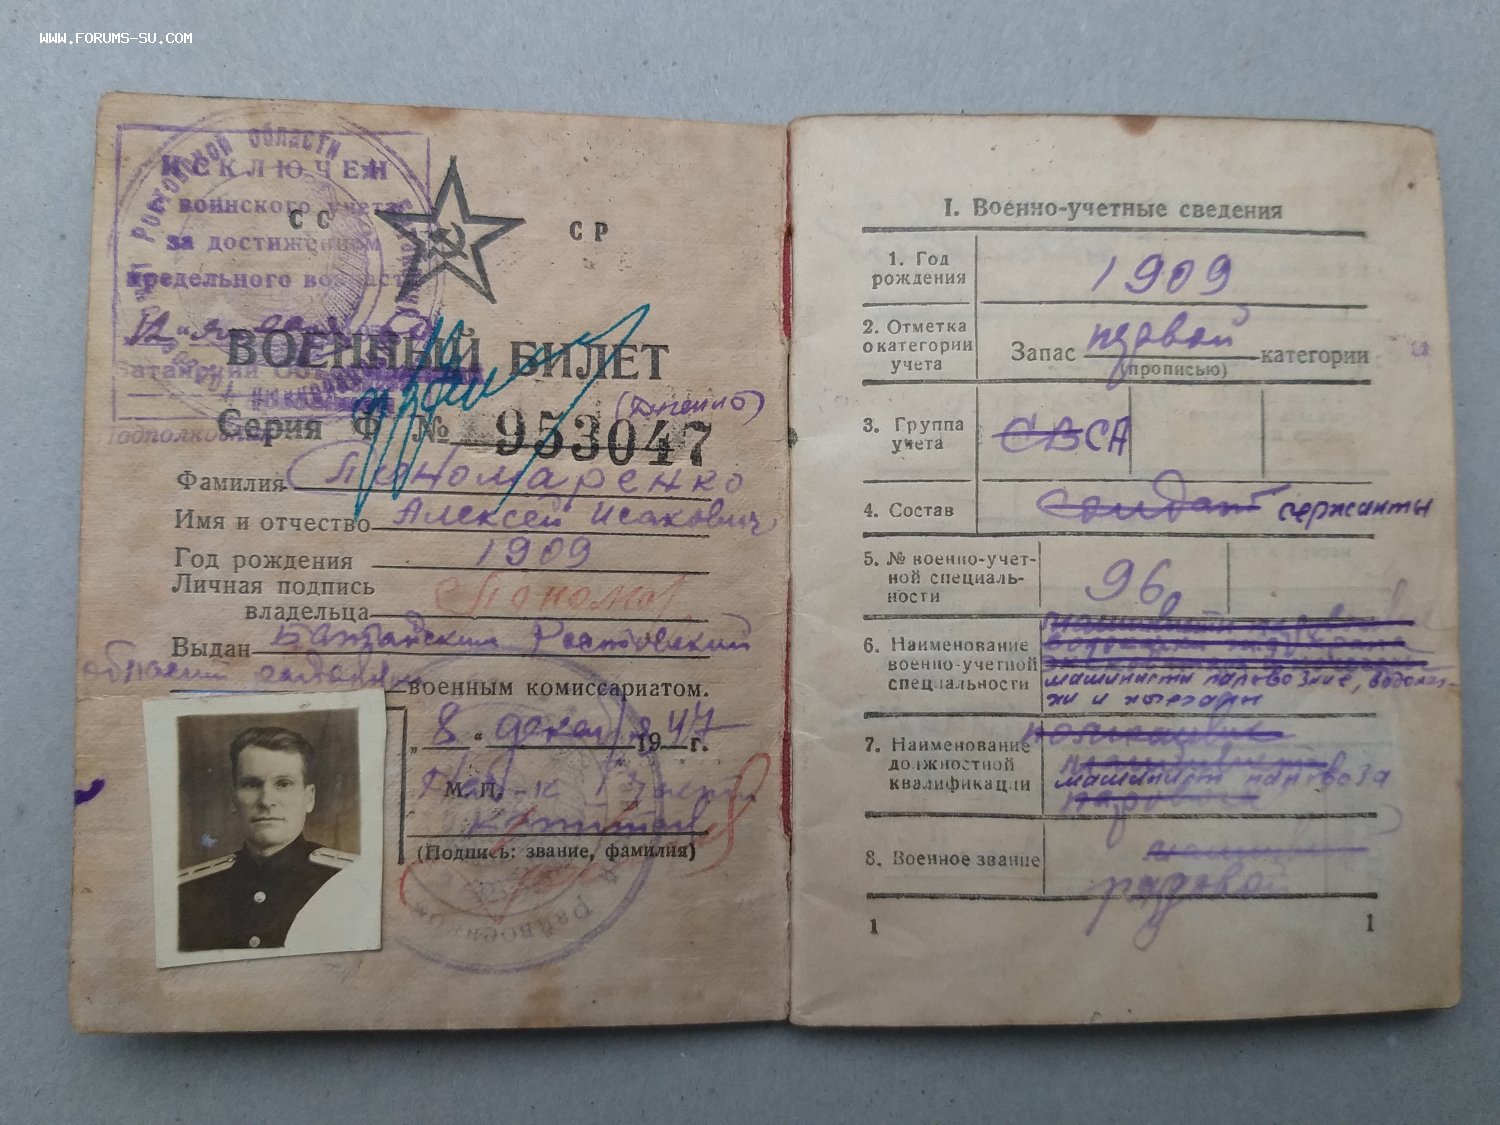 WWW.FORUMS-SU.COM
РОСТОВСКОЙ ОБЛАСТИ
ИСКЛЮЧЕН
воинского учета
за достижением
предельного возраста
СС СР
ВОЕННЫЙ БИЛЕТ
Серия Ф № 953047
Подполковник
Фамилия Пономаренко
Имя и отчество Алексей Исакович
Год рождения 1909
Личная подпись
владельца Поном
Выдан Батайским Ростовской
области
военным комиссариатом.
„8“ декаб 1947 г.
М.П. Нач-к 1 части
капитан
(Подпись: звание, фамилия)
Райвоенком
I. Военно-учетные сведения
1. Год
рождения 1909
2. Отметка
о категории
учета
Запас первой категории
(прописью)
3. Группа
учета СВСА
4. Состав солдат сержанты
5. № военно-учет-
ной специаль-
ности 96
6. Наименование
военно-учетной
специальности
машинисты паровозные, водокач-
ки и
7. Наименование
должностной
квалификации
машинист паровоза
8. Военное звание
рядовой
1 1